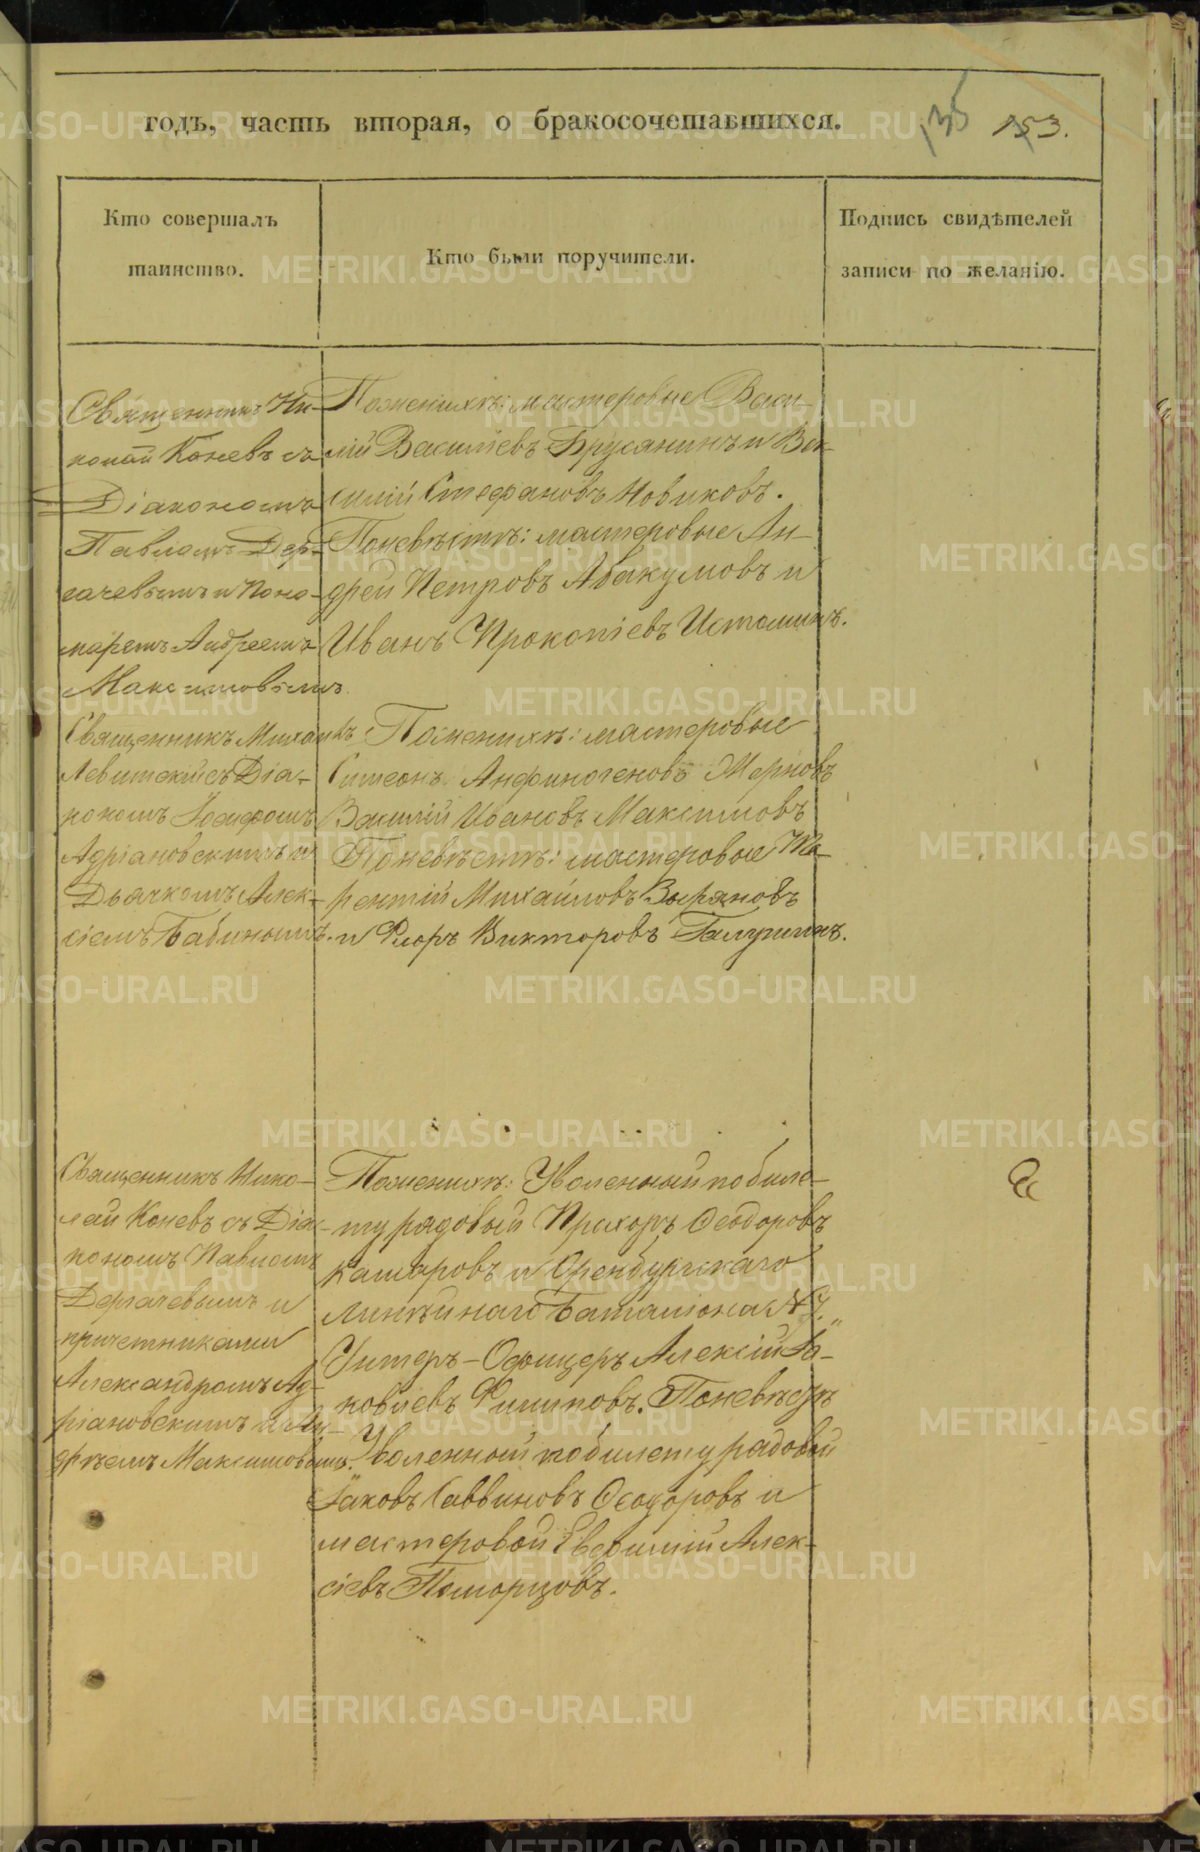 годъ, часть вторая, о бракосочетавшихся.
135 153.
Кто совершалъ
таинство.
Кто были поручители.
Подпись свидѣтелей
записи по желанію.
Священникъ Ни-
колай Коневъ съ
Діакономъ
Павломъ Дер-
гачевымъ и Поно-
маремъ Андреемъ
Максимовымъ.
По женихѣ: мастеровые Васи-
лій Васильевъ Брусянинъ и Ва-
силій Стефановъ Новиковъ.
По невѣстѣ: мастеровые Ан-
дрей Петровъ Абакумовъ и
Иванъ Прокопіевъ Истоминъ.
Священникъ Михаилъ
Левитскій съ Діа-
кономъ Іоасафомъ
Адріановскимъ и
Дьячкомъ Алек-
сіемъ Бабинымъ.
По женихѣ: мастеровые
Симеонъ Анфиногеновъ
Василій Ивановъ Максимовъ
По невѣстѣ: мастеровые Те-
рентій Михайловъ Зыряновъ
и Флоръ Викторовъ Галушинъ.
Священникъ Нико-
лай Коневъ съ Діа-
кономъ Павломъ
Дергачевымъ и
причетниками
Александромъ Ад-
ріановскимъ и Ан-
дреемъ Максимовымъ.
По женихѣ: Уволенный по биле-
ту рядовый Прохоръ Ѳеодоровъ
Комаровъ и Оренбургскаго
Линѣйнаго Баталіона №
Унтеръ-Офицеръ Алексій Яѣ-
ковлевъ Филиповъ. По невѣстѣ
Уволенный по билету рядовой
Іаковъ Саввиновъ Ѳеодоровъ и
мастеровой Евфимій Алек-
сіевъ Поморцовъ.